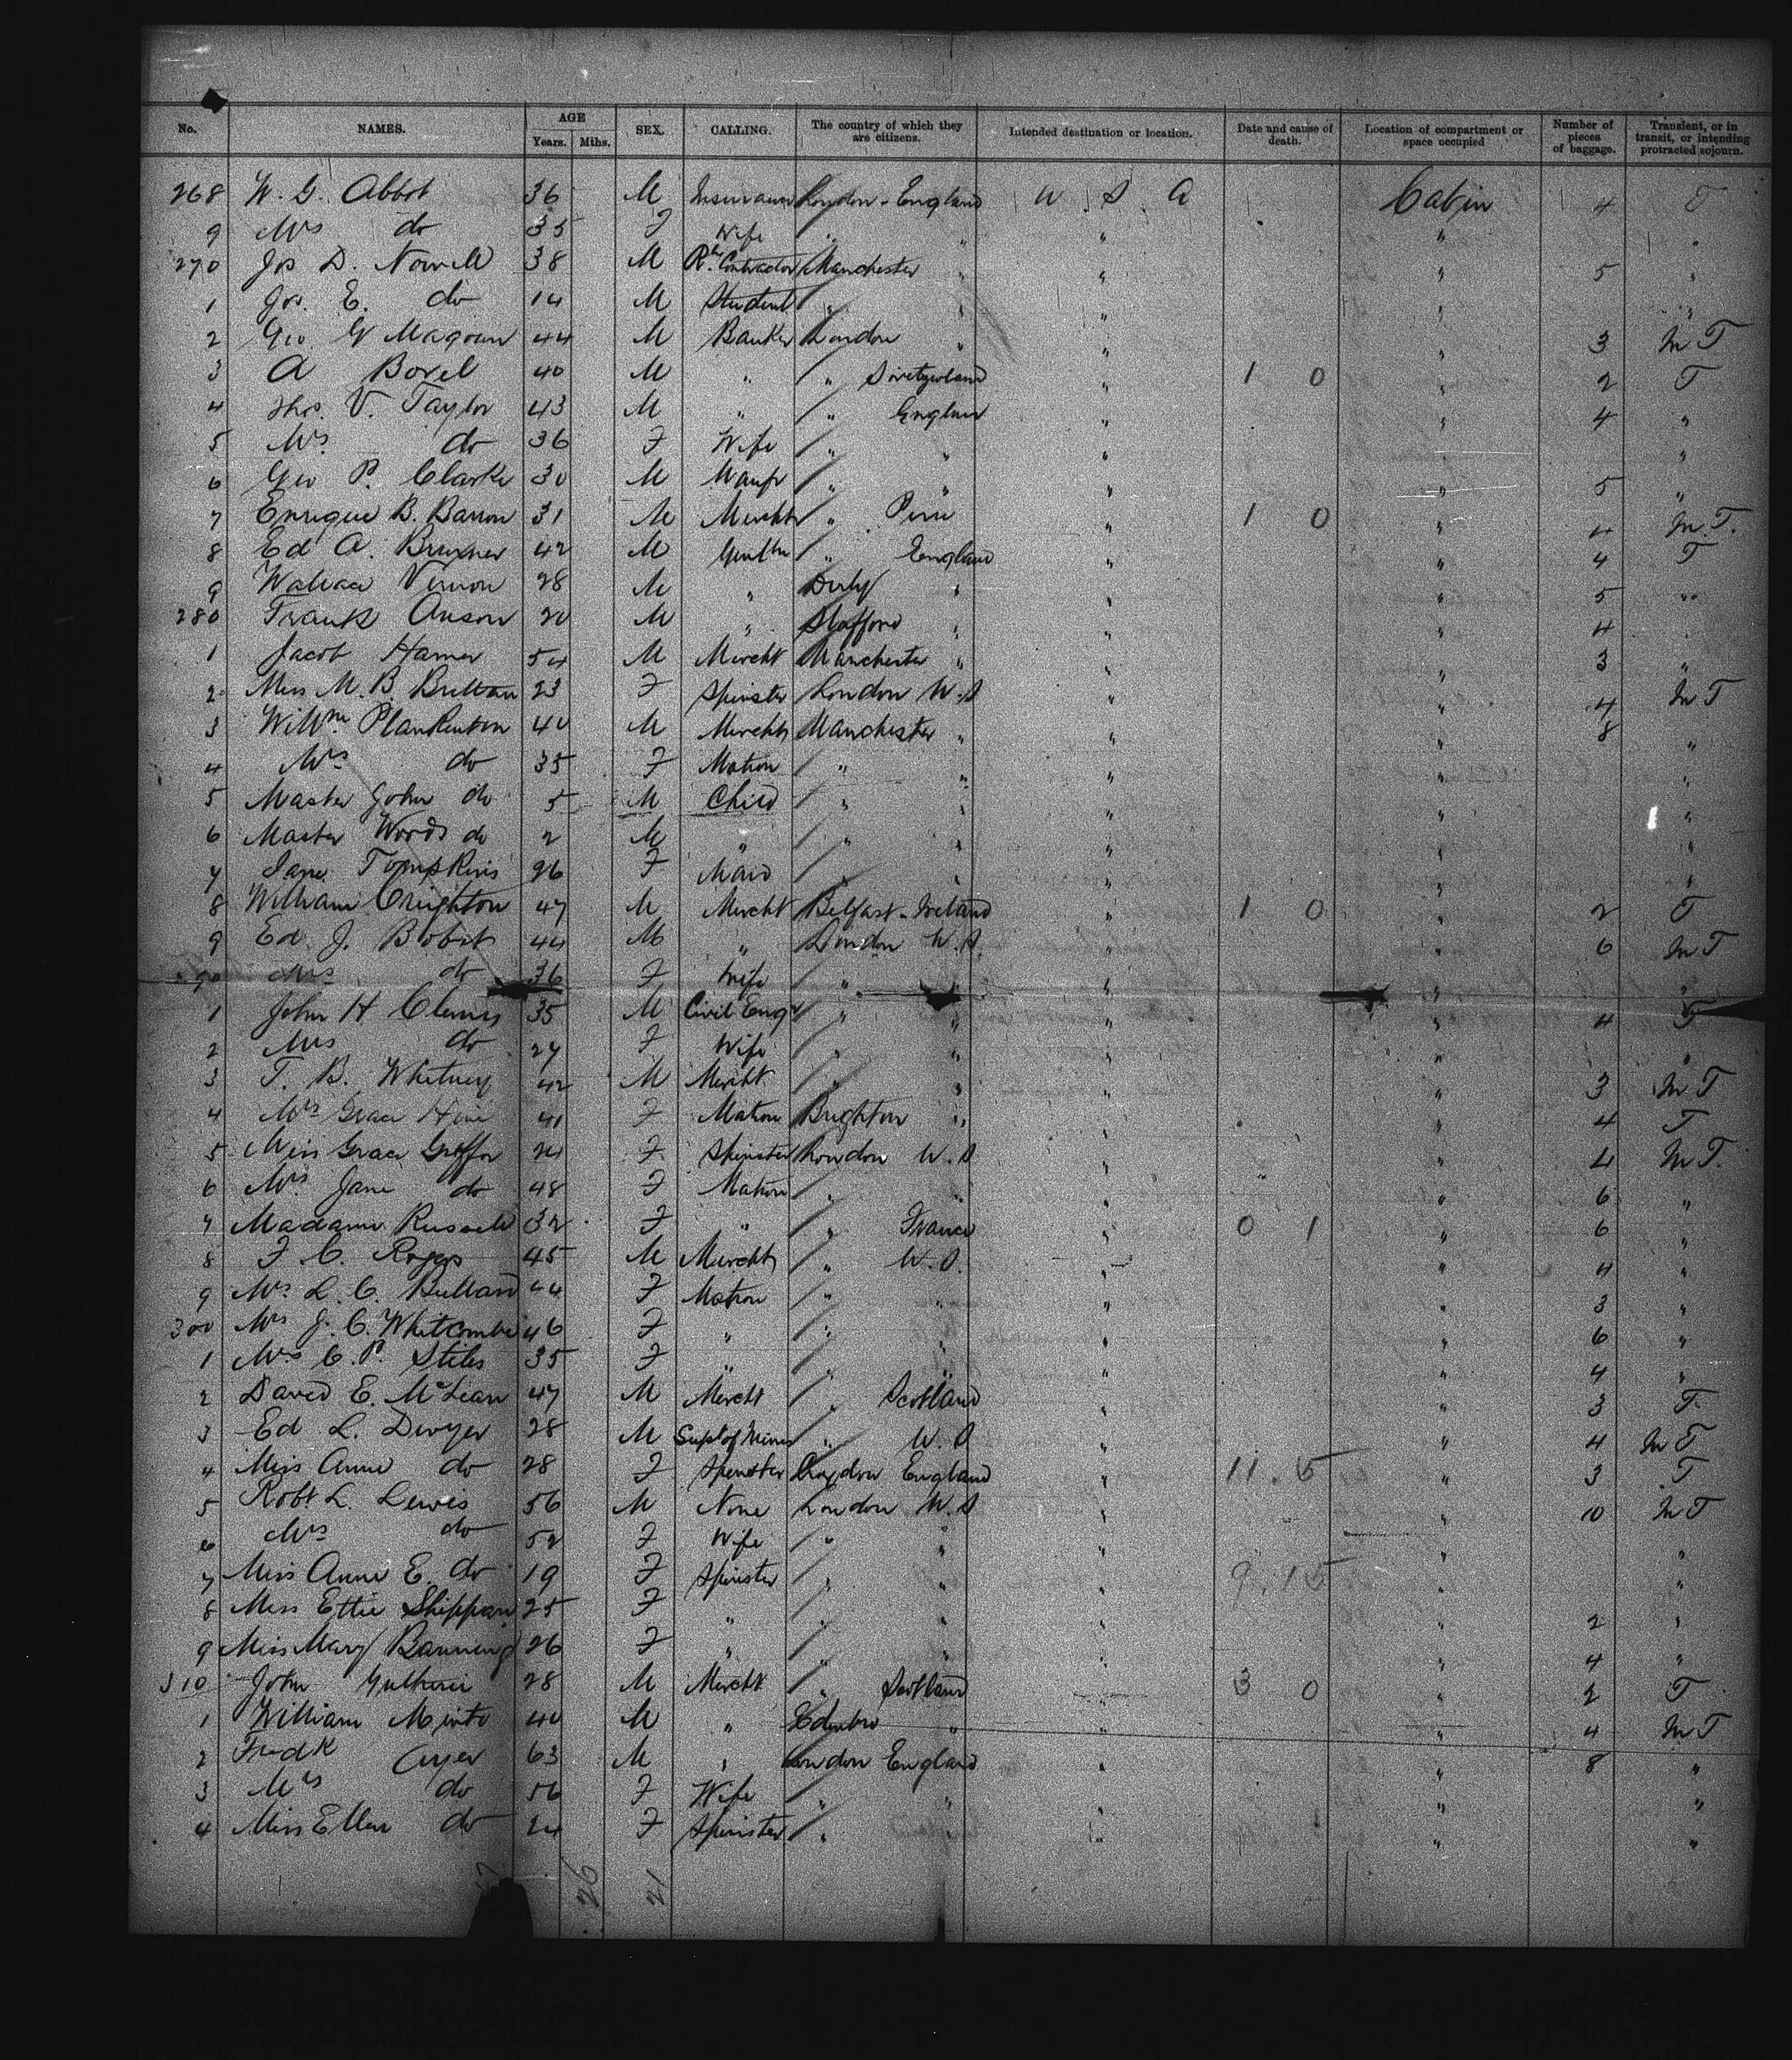 No. NAMES. AGE Years. Mths. SEX. CALLING. The country of which they are citizens. Intended destination or location. Date and cause of death. Location of compartment or space occupied Number of pieces of baggage. Transient, or in transit, or intending protracted sojourn.
268 W. G. Abbot 36 M London - England U S A Cabin 4 T
9 Mrs do 35 F Wife " " " " "
270 Jos D. Nowell 38 M Manchester " " " 5 "
1 Jos. E. do 14 M Student " " " " "
2 Geo. G Magoun 44 M Banker London " " " 3 In T
3 A Borel 40 M " " Switzerland " 1 0 " 2 T
4 Thos. V. Taylor 43 M " " England " " 4 "
5 Mrs do 36 F Wife " " " " "
6 Geo P. Clarke 30 M Manfr " " " " 5 "
7 Enrique B. Barron 31 M Mercht " Peru " 1 0 " 4 In T.
8 Ed A. 42 M Gentln " England " " 4 T
9 Wallace Vernon 28 M " Derby " " " 5 "
280 Frank Anson 20 M " Stafford " " " 4 "
1 Jacob Hamer 54 M Mercht Manchester " " " 3 "
2 Miss M. B. 23 F Spinster London U.S " " 4 In T
3 Willm. Plankenton 40 M Mercht Manchester " " " 8 "
4 Mrs do 35 F Matron " " " " "
5 Master John do 5 M Child " " " " "
6 Master Woods do 2 M " " " " " "
7 Jane Tompkins 26 F Maid " " " " "
8 William Creighton 47 M Mercht Belfast - Ireland " 1 0 " 2 T
9 Ed. J. 44 M " London U.S. " " 6 In T
90 Mrs do 36 F Wife " " " " "
1 John H 35 M Civil Engr " " " " 4 T
2 Mrs do 27 F Wife " " " " "
3 T. B. Whitney 42 M Mercht " " " " 3 In T
4 Mrs Grace 41 F Matron Brighton " " " 4 T
5 Miss Grace 24 F Spinster London U.S " " 4 In T.
6 Mrs. Jane do 48 F Matron " " " " 6 "
7 Madame Russell 32 F " " France " 0 1 " 6 "
8 F. C. Rogers 45 M Mercht " U.S. " " 4 "
9 Mrs L. C. Bullard 44 F Matron " " " " 3 "
300 Mrs J. C. Whitcombe 46 F " " " " " 6 "
1 Mrs C. P. Stiles 35 F " " " " " 4 "
2 David E. McLean 47 M Mercht " Scotland " " 3 T.
3 Ed L. Dwyer 28 M Supt of Mines " U.S " " 4 In T
4 Miss Annie do 28 F Spinster Croydon England " 11.5 " 3 T
5 Robt L. Lewis 56 M None London U.S " " 10 In T
6 Mrs do 52 F Wife " " " " "
7 Miss Annie E. do 19 F Spinster " " " 9.15 " "
8 Miss Ettie Shippan 25 F " " " " " 2 "
9 Miss Mary Banning 26 F " " " " " 4 "
310 John Guthrie 28 M Mercht " Scotland " 3 0 " 2 T
1 William Minto 40 M " Edinbro " " " 4 In T
2 Fredk Ayer 63 M " London England " " 8 "
3 Mrs do 56 F Wife " " " " "
4 Miss Ellen do 24 F Spinster " " " " "
26 21